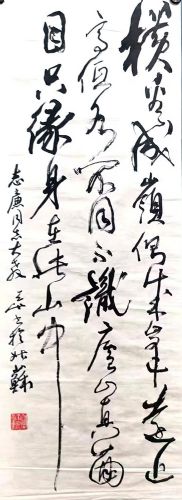 橫看成嶺側成峰遠近
高低各不同不識廬山真面
目只緣身在此山中
同志大教 書於姑蘇